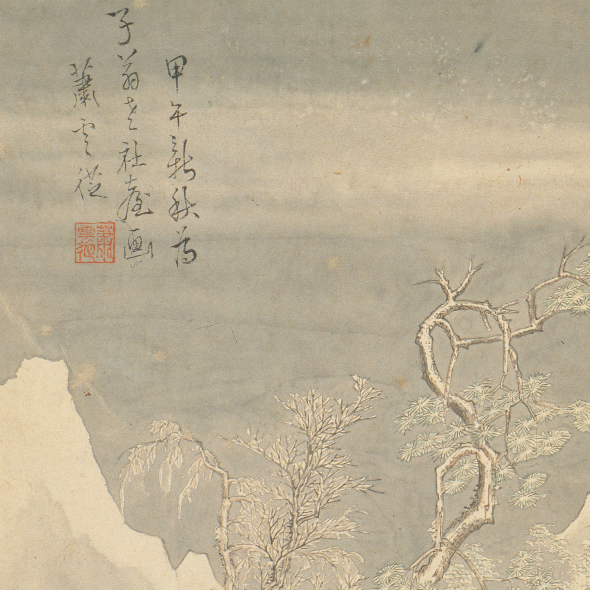 甲午新秋為
子翁老社臺画
蕭雲從
蕭雲從